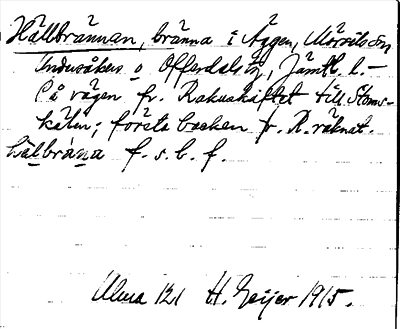 Hällbrännan, bränna i Äggen, Mörsils sn
Undersåkers o Offerdals tg, Jämtl. l. –
På vägen fr. Rakaskaftet till Stens-
kälen; första backen fr. R. räknat.
hälbräna f. s. b. f.
Ulma 121 H. Geijer 1915.